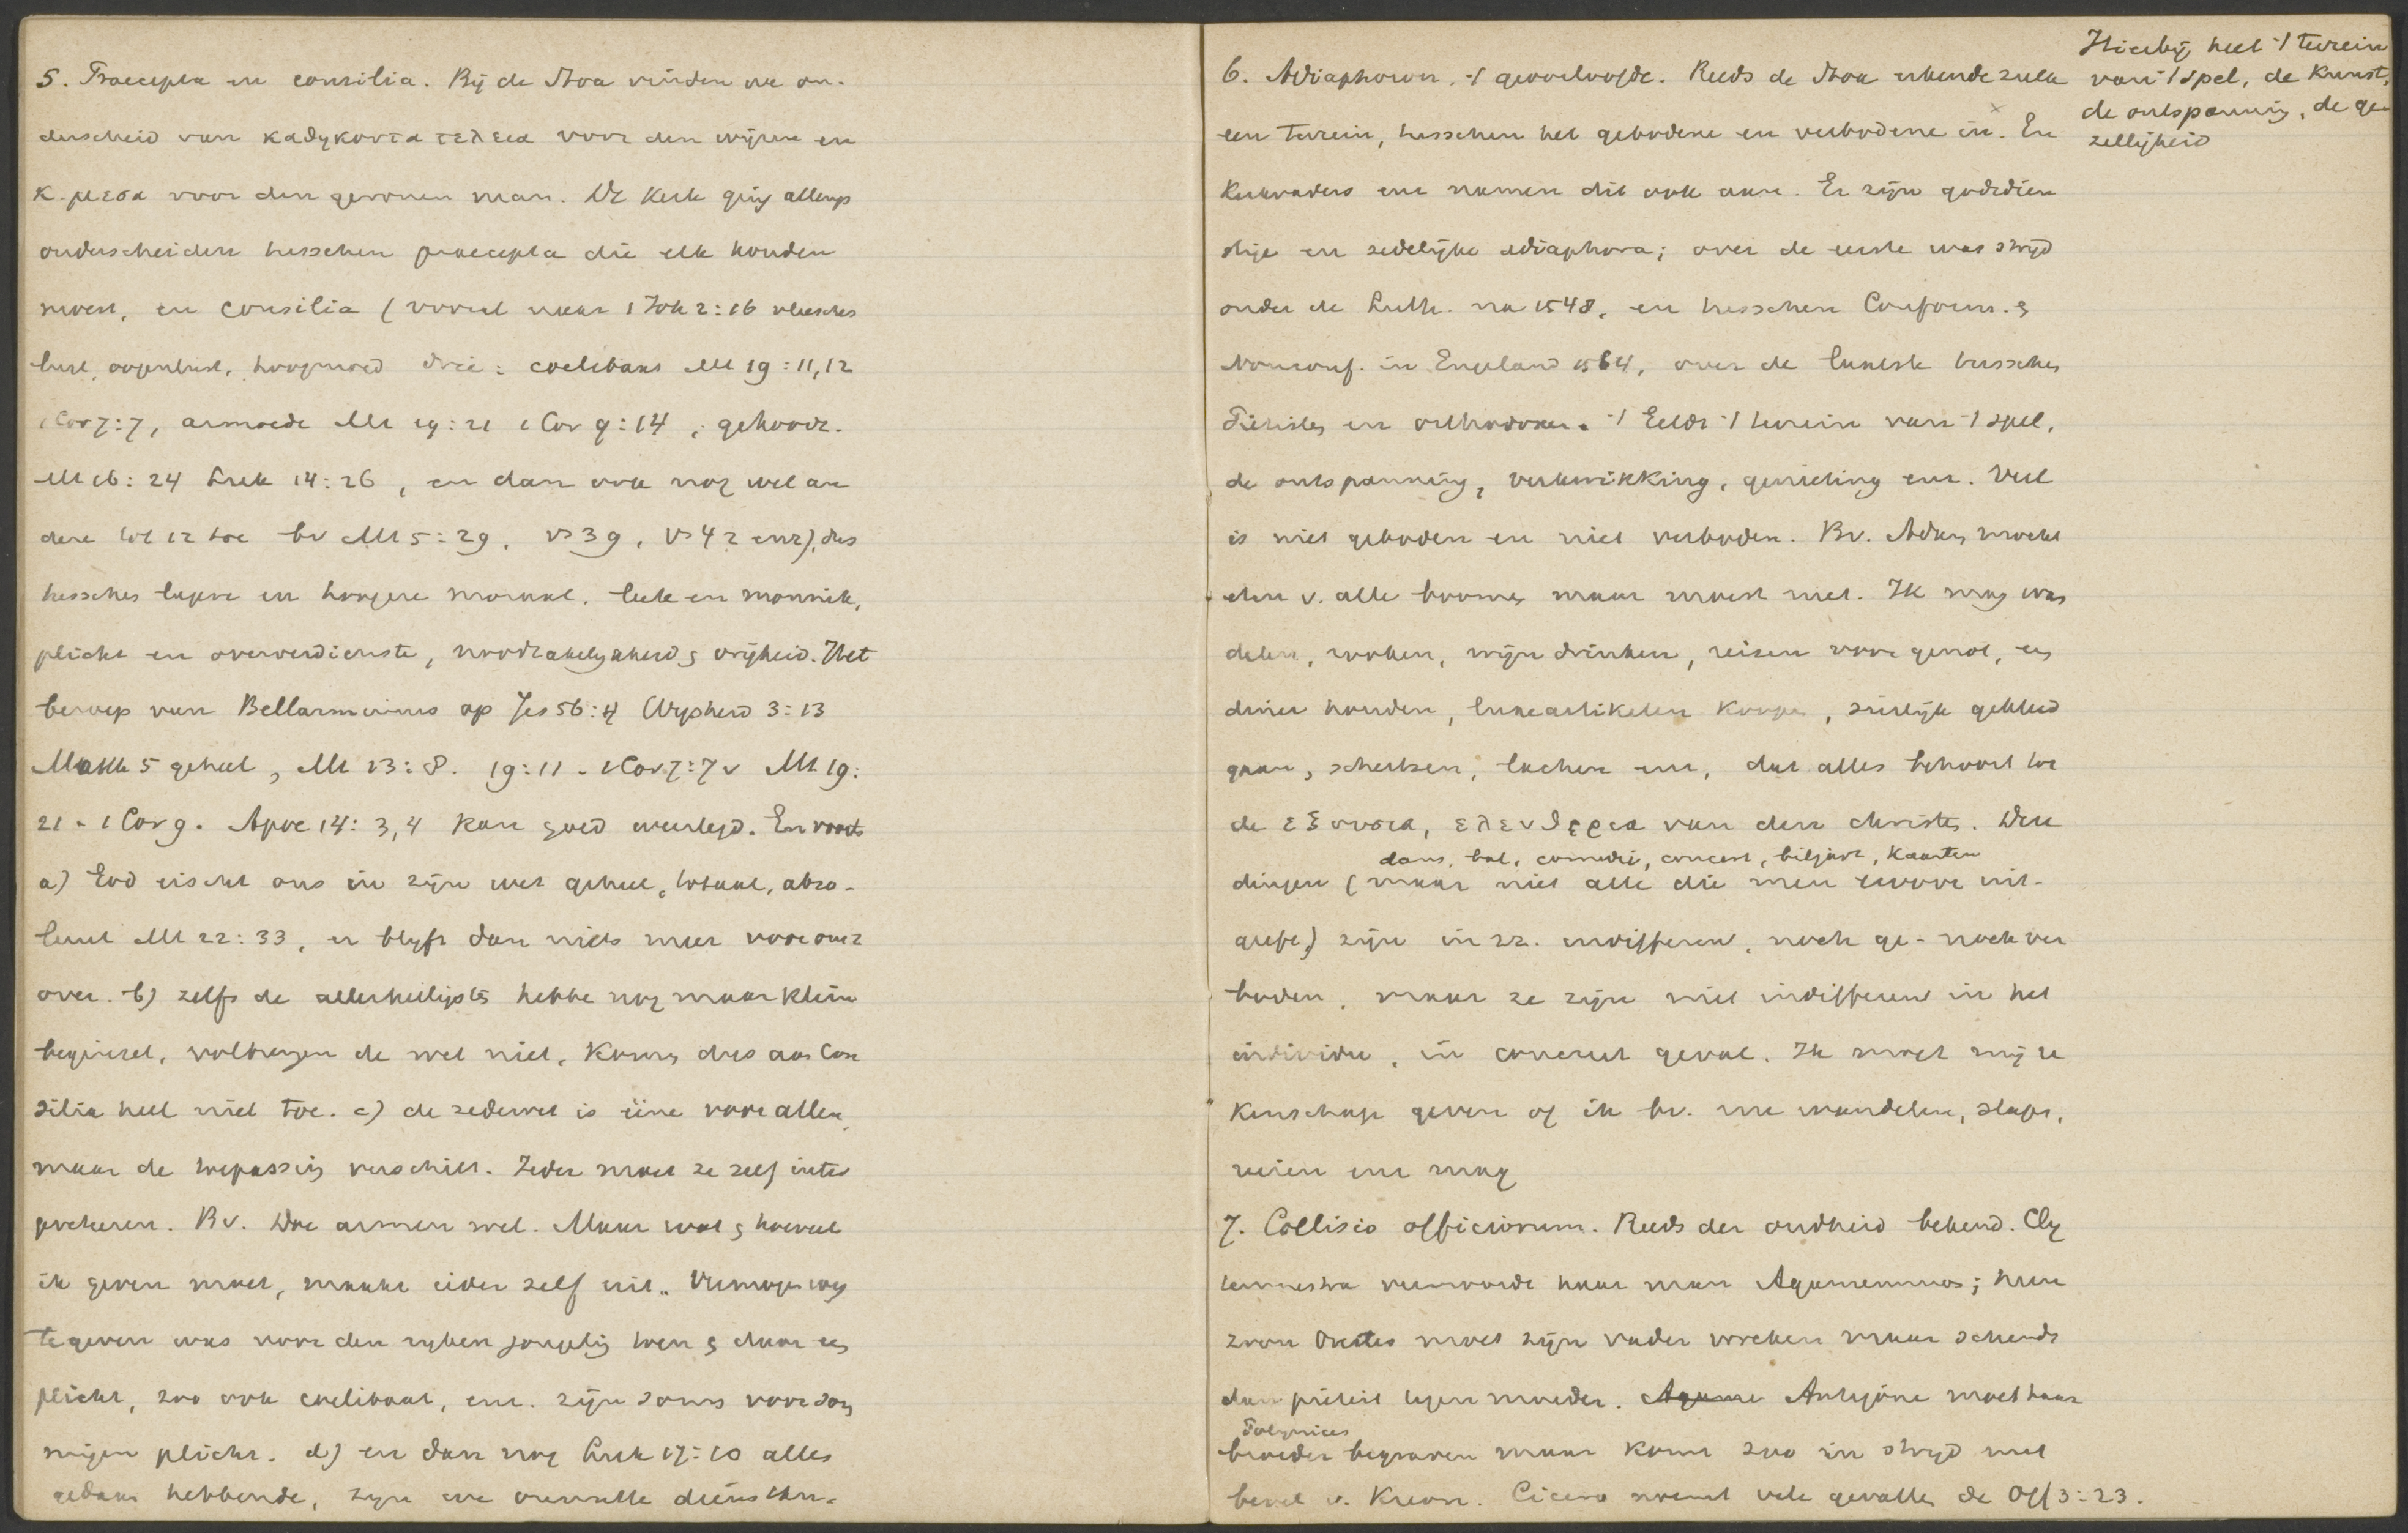 5. Praecepta en consilia. Bij de Stoa vinden we on-
derscheid van καθηκοντα τελεια voor den wijzen en
κ. μεσα voor den gewonen man. De Kerk ging allengs
onderscheiden tusschen praecepta die elk houden
moest, en consilia (vooral naar 1 Joh 2:16 vleesches
lust, oogenlust, hoogmoed drie: coelibaas Mt 19:11,12
1 Cor 7:7, armoede Mt 19:21 1 Cor 9:14, gehoorz.
Mt 16:24 Luk 14:26, en dan ook nog wel an
dere tot 12 toe bv Mt 5:29, vs 39, vs 42 enz), dus
tusschen lagere en hoogere moraal, leek en monnik,
plicht en oververdienste, noodzakelijkheid & vrijheid. Het
beroep van Bellarminus op Jes 56:4 Wijsheid 3:13
Mark 5 geheel, Mt 13:8. 19:11 - 1 Cor 7:7 v Mt 19:
21 - 1 Cor 9. Apoc 14:3,4 kan goed weerlegd. En voorts
a) God eischt ons in zijn wet geheel, totaal, abso-
luut Mt 22:33, er blyft dan niets meer voor onz
over. b) zelfs de allerheiligsten hebbe nog maar klein
beginsel, volbrengen de wet niet, komen dus aan con
silia heel niet toe. c) de zedewet is ééne voor allen,
maar de toepassing verschilt. Ieder moet ze zelf inter
preteren. Bv. Doe armen wel. Maar wat & hoeveel
ik geven moet, maakt ieder zelf uit. Vermogen weg
te geven was voor den ryken jongeling toen & daar een
plicht, zoo ook coelibaat, enz. zijn soms voor som
migen plicht. d) en dan nog Luk 17:10 alles
gedaan hebbende, zijn we onnutte dienstkn.
6. Adiaphoron, 't geoorloofde. Reeds de Stoa erkende zulk
een terrein, tusschen het gebodene en verbodene in. En
Kerkvaders enz namen dit ook aan. Er zijn godsdien
stige en zedelijke adiaphora; over de eerste was strijd
onder de Luth. na 1548, en tusschen Conform. &
Nonconf. in Engeland 1564, over de laatste tusschen
Piëtisten en orthodoxen. 't Geldt 't terrein van 't spel,
de ontspanning, verkwikking, genieting enz. Veel
is niet geboden en niet verboden. Bv. Adam mocht
eten v. alle boomen maar moest niet. Ik mag wan
delen, rooken, wijn drinken, reizen voor genot, een
diner houden, luxeartikelen koopen, sierlijk gekleed
gaan, schertsen, lachen enz, dat alles behoort tot
de εξουσια, ελευθερια van den christen. Deze
dans, bal, comedie, concert, biljart, kaarten
dingen (maar niet alle die men ervoor uit-
geeft) zijn in zz. indifferent, noch ge- noch ver
boden, maar ze zijn niet indifferent in het
individu, in concreet geval. Ik moet mij re
kenschap geven of ik bv. nu wandelen, slapen,
reizen enz mag
7. Collisio officiorum. Reeds der oudheid bekend. Cly
temnestra vermoorde haar man Agamemnon; hun
zoon Orestes moet zijn vader wreken maar schendt
dan piëteit tegen moeder. Antigone moet haar
Polynices
broeder begraven maar komt zoo in strijd met
bevel v. Kreon. Cicero noemt vele gevallen de Off 3:23.
Hierbij heel 't terrein
van 't spel, de kunst,
de ontspanning, de ge
zelligheid